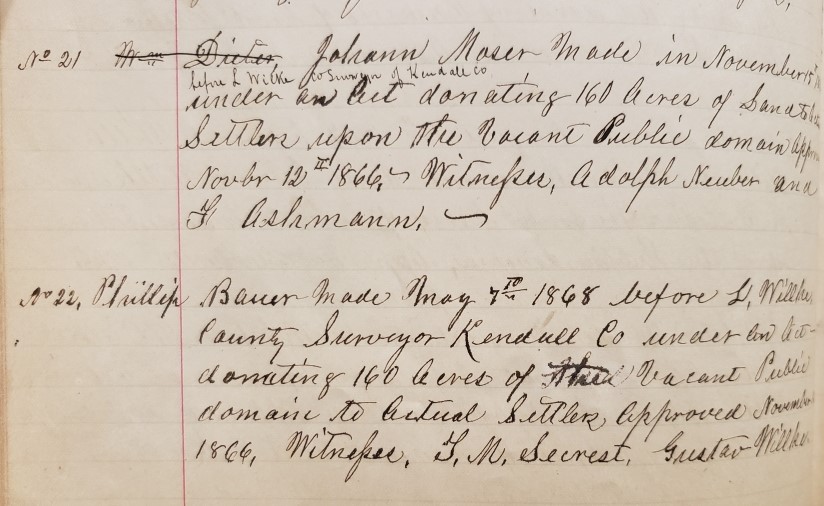 No 21 Wm Dieter, Johann Moser Made in November 15th
before L Wilke Co Surveyor of Kendall Co
under an Act donating 160 Acres of Land to
Settlers upon the Vacant Public domain
Novbr 12th 1866, Witnesses, Adolph Neuber and
F Ashmann.
No 22, Phillip Bauer Made May 7th 1868 before L, Willke,
County Surveyor Kendall Co under an Act
donating 160 Acres of Vacant Public
domain to Actual Settlers, Approved November
1866, Witnesses, F. M. Secrest, Gustav Willke